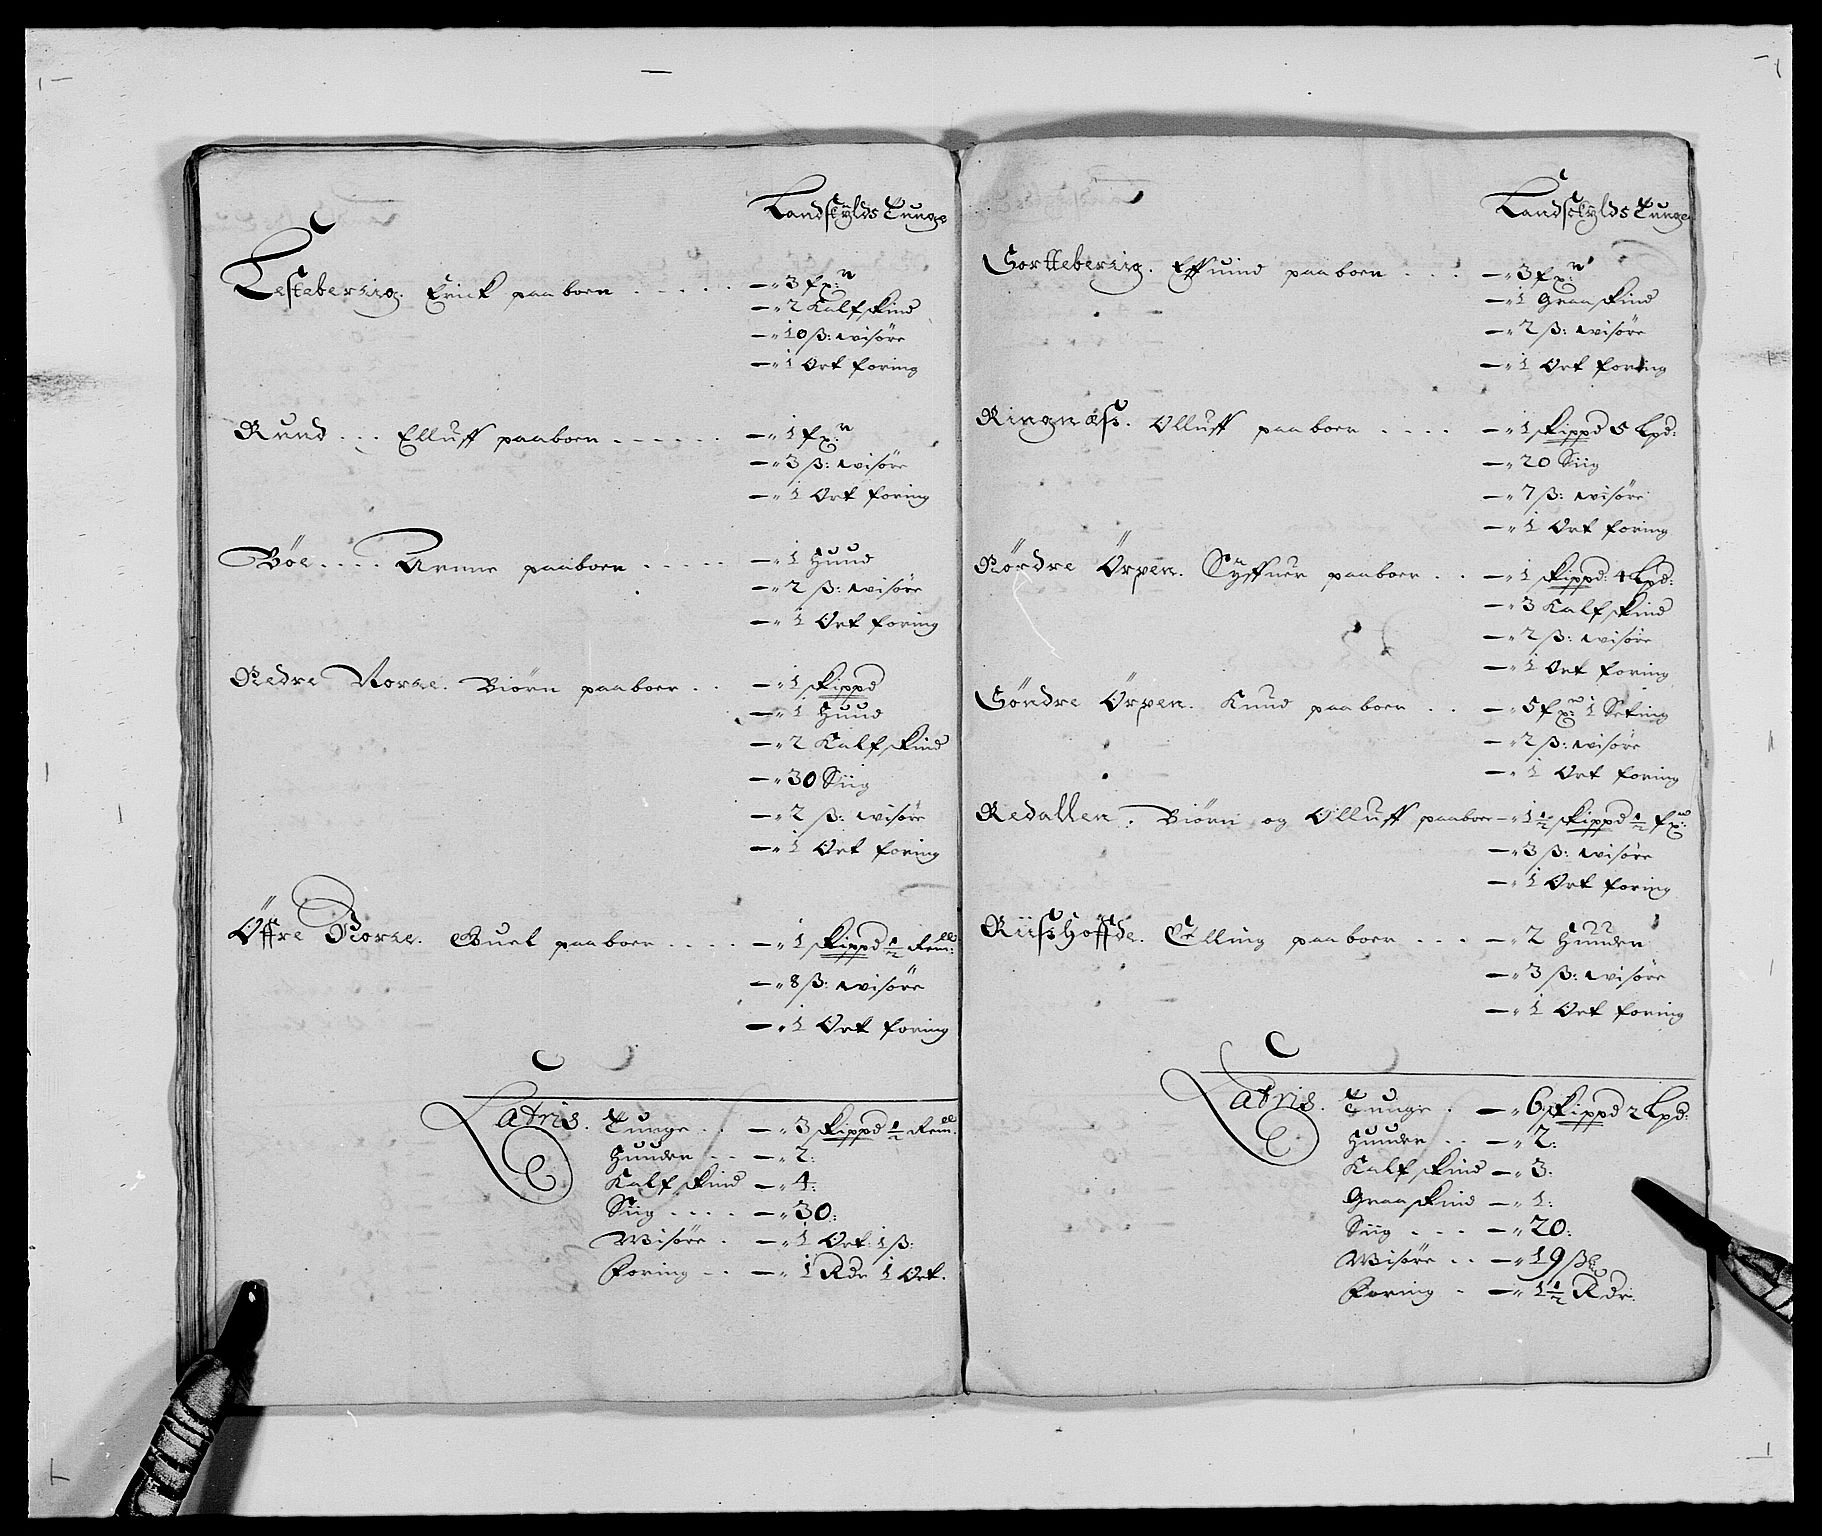 Landskylds Tunge
Kesteberrig. Erick paaboen ..... —„ 3 fx:n
—„ 2 Kalfskind
—„ 10 ß: wisöre
—„ 1 Ort foring
Rund ... Elluff paaboen ...... —„ 1 fx:n
—„ 3 ß: wisöre
—„ 1 Ort foring
Böe .... Arnne paaboen ..... —„ 1 Huud
—„ 2 ß: wisöre
—„ 1 Ort foring
Nedre Biörn paaboer .. —„ 1 skippd
—„ 1 Huud
—„ 2 Kalfskind
—„ 30 Siig
—„ 2 ß: wisöre
—„ 1 Ort foring
Öffre paaboer .... —„ 1 skippd ½ Rem:
—„ 8 ß: wisöre
—„ 1 Ort foring
Latris. Tunge .. —„ 3 skippd ½ Rem:
Huuder .. —„ 2:
Kalfskind —„ 4:
Siig .... —„ 30:
Wisöre . —„ 1 Ort: 1 ß:
Foring .. —„ 1 Rdr 1 Ort.
Landskylds Tunge
Sorttebersig. Effuind paaboen ... —„ 3 fx:n
—„ 1 Graaskind
—„ 2 ß: wisöre
—„ 1 Ort foring
Ringnæss. Olluff paaboen .... —„ 1 skippd 5 Lpd:
—„ 20 Siig
—„ 7 ß: wisöre
—„ 1 Ort foring
Nördre Örpen. Syffuer paaboer .. —„ 1 skippd: 4 Lpd:
—„ 3 Kalfskind
—„ 2 ß: wisöre
—„ 1 Ort foring
Söndre Örpen. Knud paaboer .. —„ 5 fx:n 1 Seting
—„ 2 ß: wisöre
—„ 1 Ort foring
Redallen. Biörn og Olluff paaboer —„ 1½ skippd ½ fx:n
—„ 3 ß: wisöre
—„ 1 Ort foring
Riisshöffde. Elling paaboen ... —„ 2 Huuder
—„ 3 ß: wisöre
—„ 1 Ort foring
Latris. Tunge . —„ 6 skippd 2 Lpd:
Huuder .. —„ 2:
Kalfskind —„ 3:
Graaskind —„ 1:
Siig ... —„ 20:
Wisöre .. —„ 19 ß
Foring . —„ 1½ Rdr.